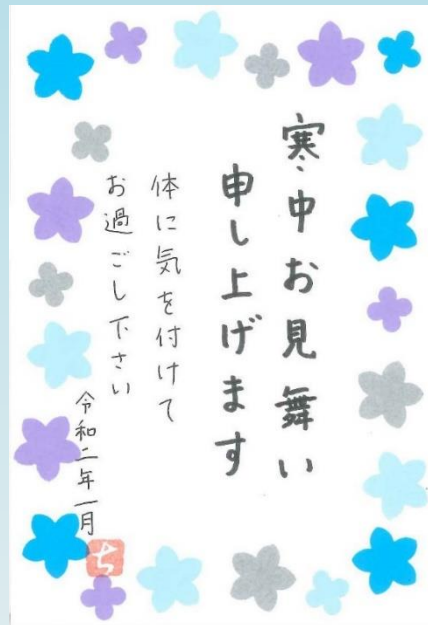 寒中お見舞い
申し上げます
体に気を付けて
お過ごし下さい
令和二年一月
ち